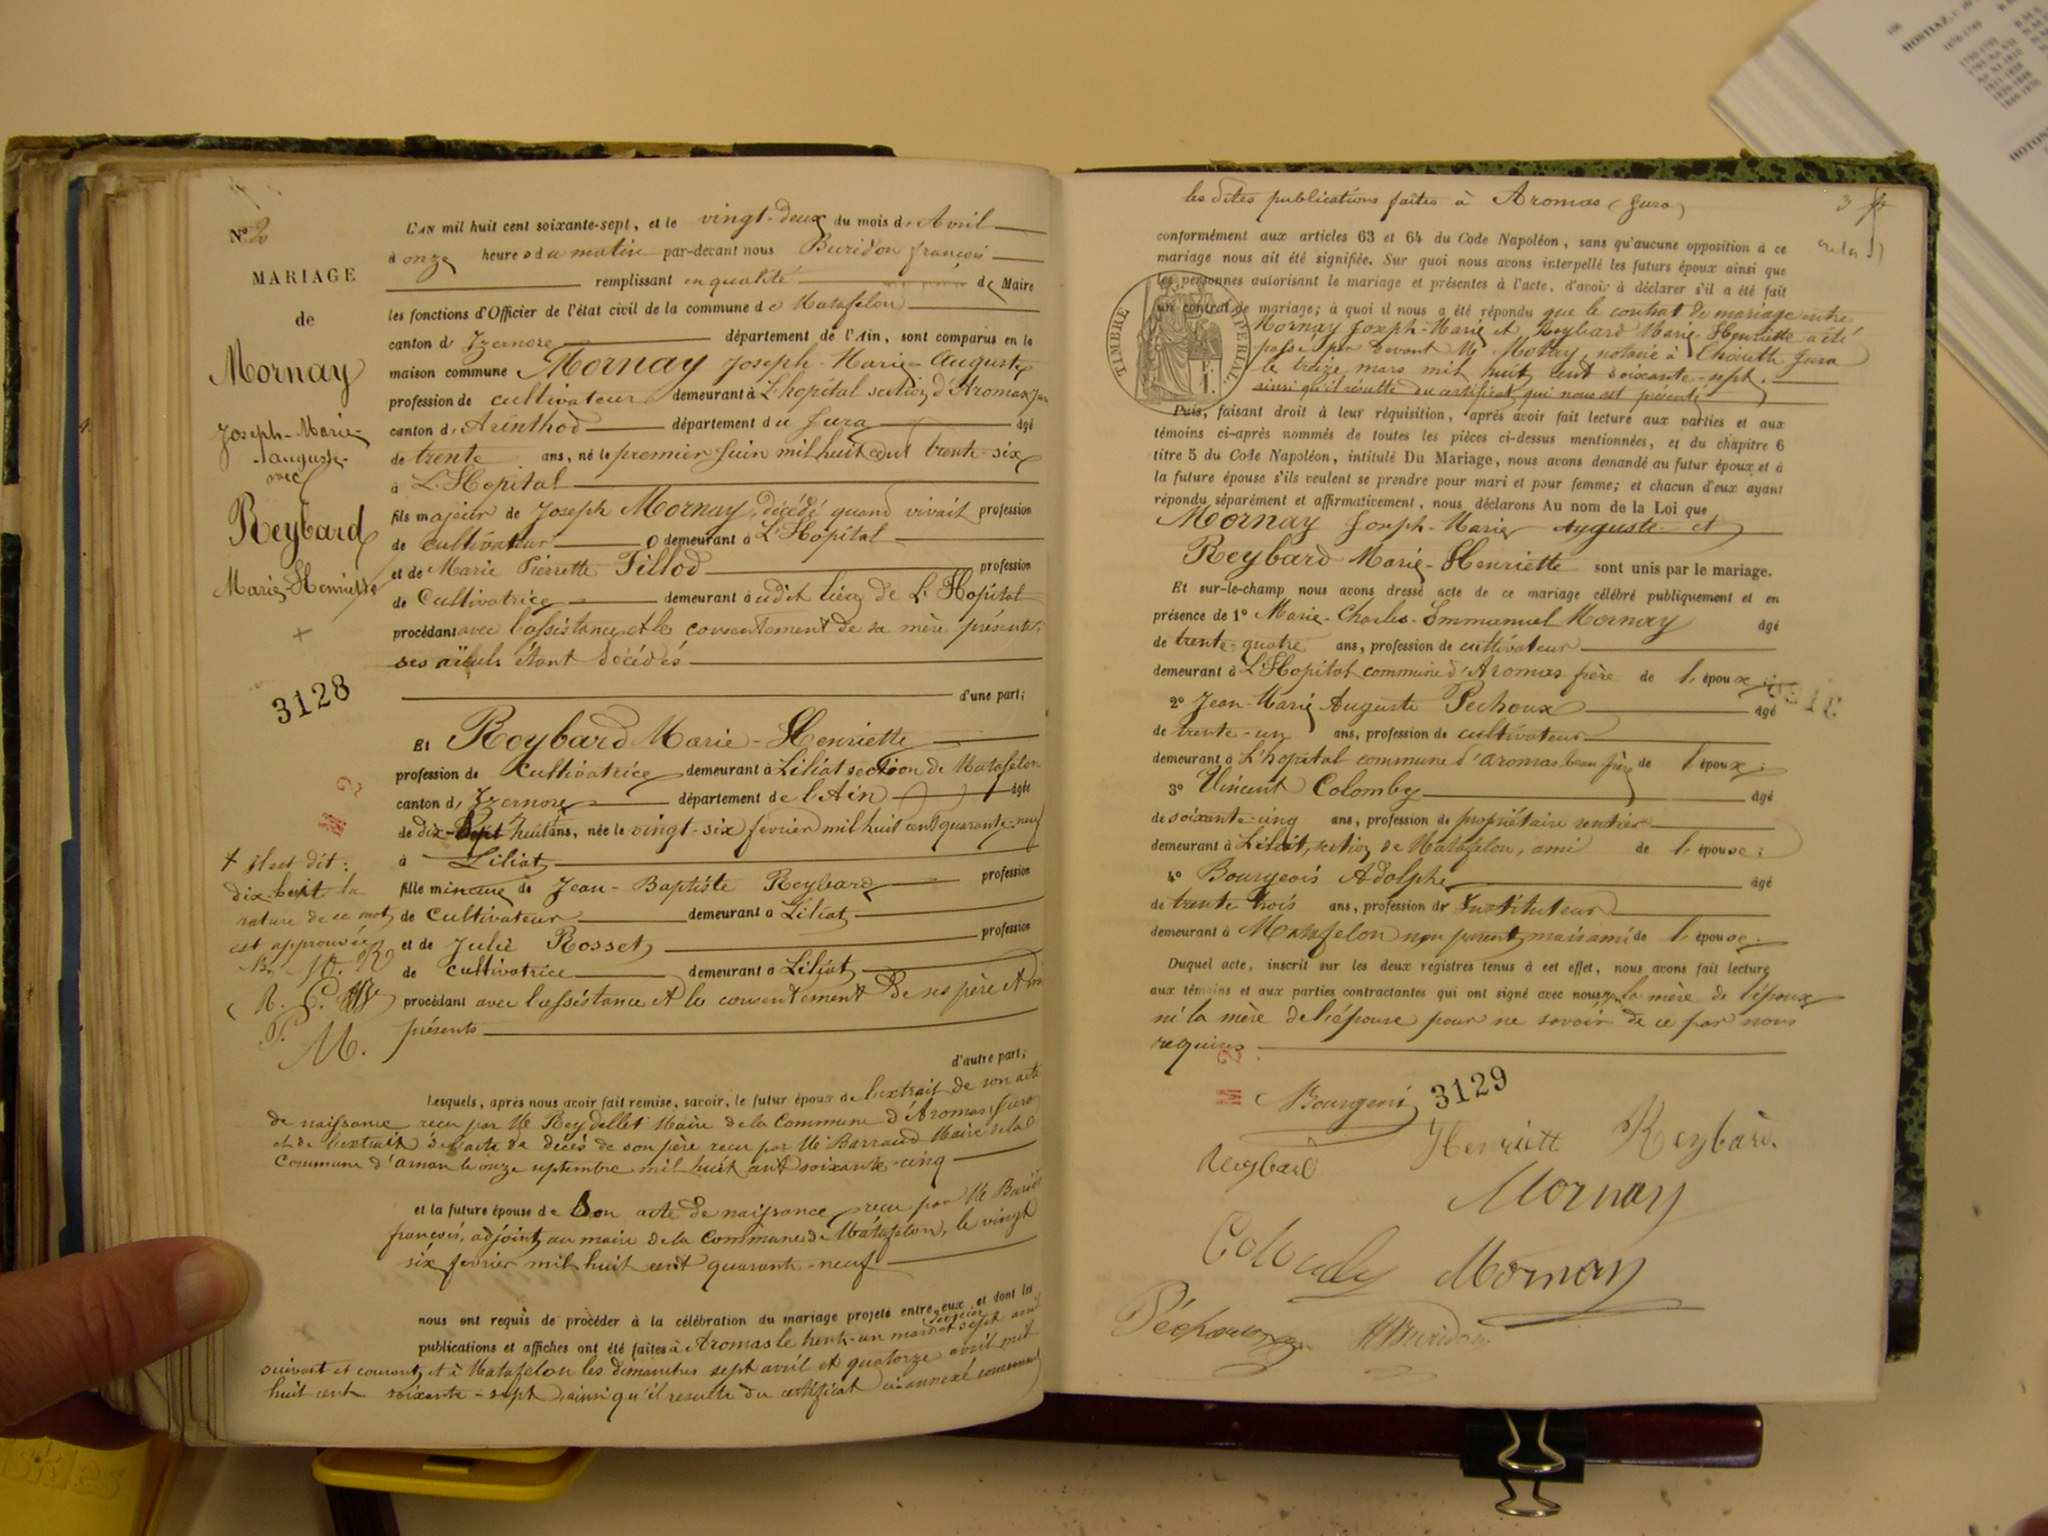 N° 2
MARIAGE
de
Mornay
Joseph-Marie-
Auguste
avec
Reybard
Marie-Henriette
3128
+ Il est dit:
dix-huit la
rature de ce mot
est approuvée
M.
L'AN mil huit cent soixante-sept, et le vingt-deux du mois d'Avril
à onze heures du matin par-devant nous Buridon françois
remplissant en qualité de Maire
les fonctions d'Officier de l'état civil de la commune de Matafelon
canton d'Izernore département de l'Ain, sont comparus en la
maison commune Mornay Joseph-Marie-Auguste
profession de cultivateur demeurant à L'hopital section d'Aromas Jura
canton d'Arinthod département du Jura âgé
de trente ans, né le premier Juin mil huit cent trente-six
à L'Hopital
fils majeur de Joseph Mornay, décédé quand vivait profession
de cultivateur demeurant à L'Hôpital
et de Marie Pierrette Tillod profession
de Cultivatrice demeurant audit lieu de L'Hôpital
procédant avec l'assistance et le consentement de sa mère présente,
ses aïeuls étant décédés
d'une part;
Et Reybard Marie-Henriette
profession de cultivatrice demeurant à Liliat section de Matafelon
canton d'Izernore département de l'Ain âgée
de dix-sept huit ans, née le vingt-six février mil huit cent quarante-neuf
à Liliat
fille mineure de Jean-Baptiste Reybard profession
de Cultivateur demeurant à Liliat
et de Julie Rosset profession
de cultivatrice demeurant à Liliat
procédant avec l'assistance et le consentement de ses père et
présents
d'autre part;
Lesquels, après nous avoir fait remise, savoir, le futur époux de l'extrait de son acte
de naissance reçu par Mr Reydellet Maire de la Commune d'Aromas, Jura
et de l'extrait de l'acte de décès de son père reçu par Mr Barraud Maire de la
Commune d' le onze septembre mil huit cent soixante-cinq
et la future épouse de Son acte de naissance reçu par Mr
françois, adjoint au maire de la Commune de Matafelon, le vingt
six février mil huit cent quarante-neuf
nous ont requis de procéder à la célébration du mariage projeté entre eux et dont les
publications et affiches ont été faites à Aromas le trente-un mars et sept avril
suivant et courant et à Matafelon les dimanches sept avril et quatorze avril mil
huit cent soixante-sept, ainsi qu'il résulte du certificat ci-annexé concernant
les dites publications faites à Aromas (Jura)
3
conformément aux articles 63 et 64 du Code Napoléon, sans qu'aucune opposition à ce
mariage nous ait été signifiée. Sur quoi nous avons interpellé les futurs époux ainsi que
les personnes autorisant le mariage et présentes à l'acte, d'avoir à déclarer s'il a été fait
un contrat de mariage; à quoi il nous a été répondu que le contrat de mariage entre
Mornay Joseph-Marie et Reybard Marie-Henriette a été
passé par devant Me notaire à Thoirette Jura
le treize mars mil huit cent soixante-sept.
ainsi qu'il résulte du certificat qui nous est présenté
TIMBRE IMPÉRIAL
Puis, faisant droit à leur réquisition, après avoir fait lecture aux parties et aux
témoins ci-après nommés de toutes les pièces ci-dessus mentionnées, et du chapitre 6
titre 5 du Code Napoléon, intitulé Du Mariage, nous avons demandé au futur époux et à
la future épouse s'ils veulent se prendre pour mari et pour femme; et chacun d'eux ayant
répondu séparément et affirmativement, nous déclarons Au nom de la Loi que
Mornay Joseph-Marie Auguste et
Reybard Marie-Henriette sont unis par le mariage.
Et sur-le-champ nous avons dressé acte de ce mariage célébré publiquement et en
présence de 1° Marie-Charles-Emmanuel Mornay âgé
de trente-quatre ans, profession de cultivateur
demeurant à L'Hopital commune d'Aromas frère de l'époux;
2° Jean-Marie Auguste Pechoux âgé
de trente-un ans, profession de cultivateur
demeurant à L'hopital commune d'aromas beau frère de l'époux;
3° Vincent Colomby âgé
de soixante-cinq ans, profession de propriétaire rentier
demeurant à Liliat, section de Matafelon, ami de l'épouse;
4° Bourgeois Adolphe âgé
de trente trois ans, profession de Instituteur
demeurant à Matafelon non parent mais ami de l'épouse;
Duquel acte, inscrit sur les deux registres tenus à cet effet, nous avons fait lecture
aux témoins et aux parties contractantes qui ont signé avec nous non la mère de l'époux
ni la mère de l'épouse pour ne savoir de ce par nous
requises
Bourgeois
3129
Henriett Reybard
Reybard
Mornay
Colomby
Mornay
Péchoux
Buridon